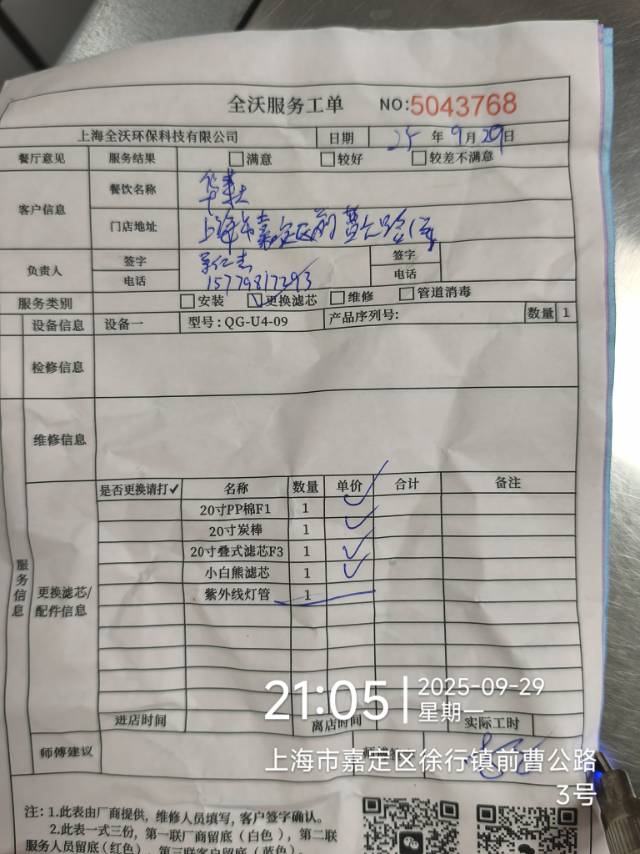 全沃服务工单 NO:5043768
上海全沃环保科技有限公司 日期 25 年 9 月 29 日
餐厅意见 服务结果 满意 较好 较差不满意
客户信息 餐饮名称 华莱士
门店地址 上海市嘉定区前曹公路
负责人 签字 签字
电话 15779817293 电话
服务类别 安装 更换滤芯 维修 管道消毒
设备信息 设备一 型号:QG-U4-09 产品序列号: 数量 1
检修信息
维修信息
服务信息 更换滤芯/配件信息
是否更换请打✓ 名称 数量 单价 合计 备注
20寸PP棉F1 1 ✓
20寸炭棒 1 ✓
20寸叠式滤芯F3 1 ✓
小白熊滤芯 1 ✓
紫外线灯管 1
进店时间 离店时间 实际工时
师傅建议
21:05 2025-09-29
星期一
上海市嘉定区徐行镇前曹公路
3号
注:1.此表由厂商提供,维修人员填写,客户签字确认。
2.此表一式三份,第一联厂商留底(白色),第二联
服务人员留底(红色),第三联客户留底(蓝色)。